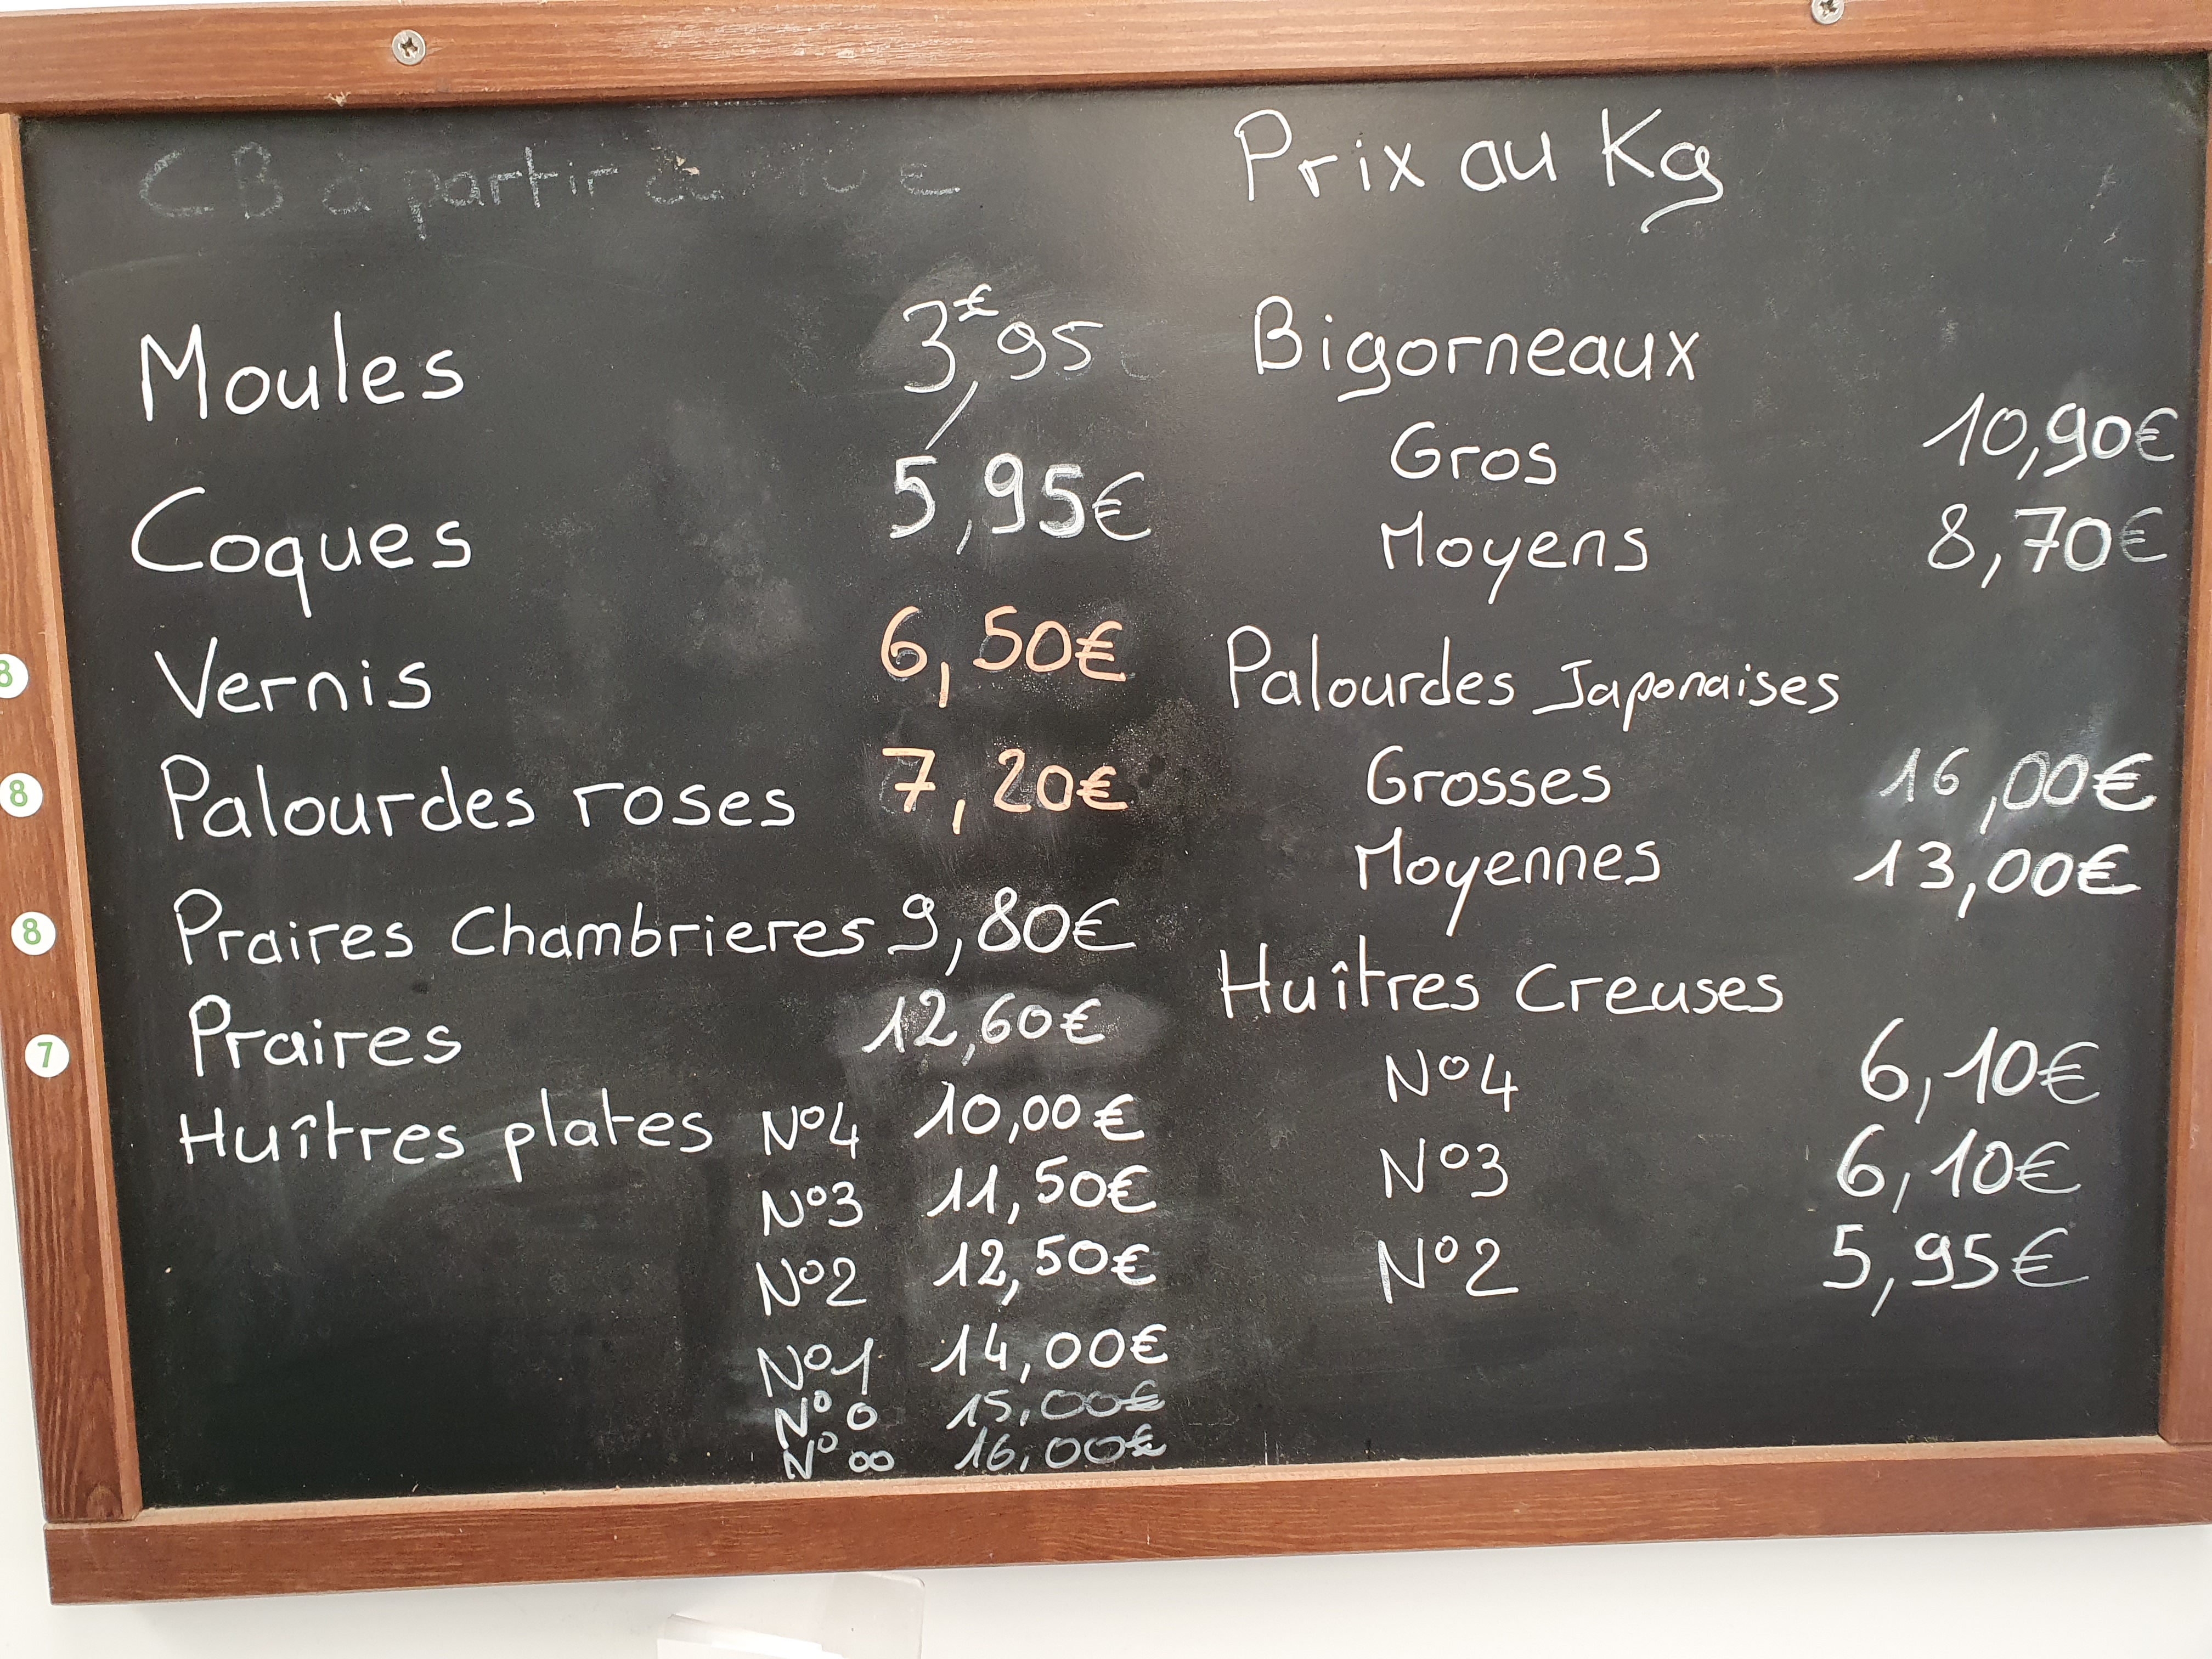 CB à partir de 10 €
Prix au Kg
Moules 3€,95
Coques 5,95€
Vernis 6,50€
Palourdes roses 7,20€
Praires Chambrieres 9,80€
Praires 12,60€
Huîtres plates N°4 10,00€
N°3 11,50€
N°2 12,50€
N°1 14,00€
N°0 15,00€
N°00 16,00€
Bigorneaux
Gros 10,90€
Moyens 8,70€
Palourdes Japonaises
Grosses 16,00€
Moyennes 13,00€
Huîtres Creuses
N°4 6,10€
N°3 6,10€
N°2 5,95€
8
8
8
7